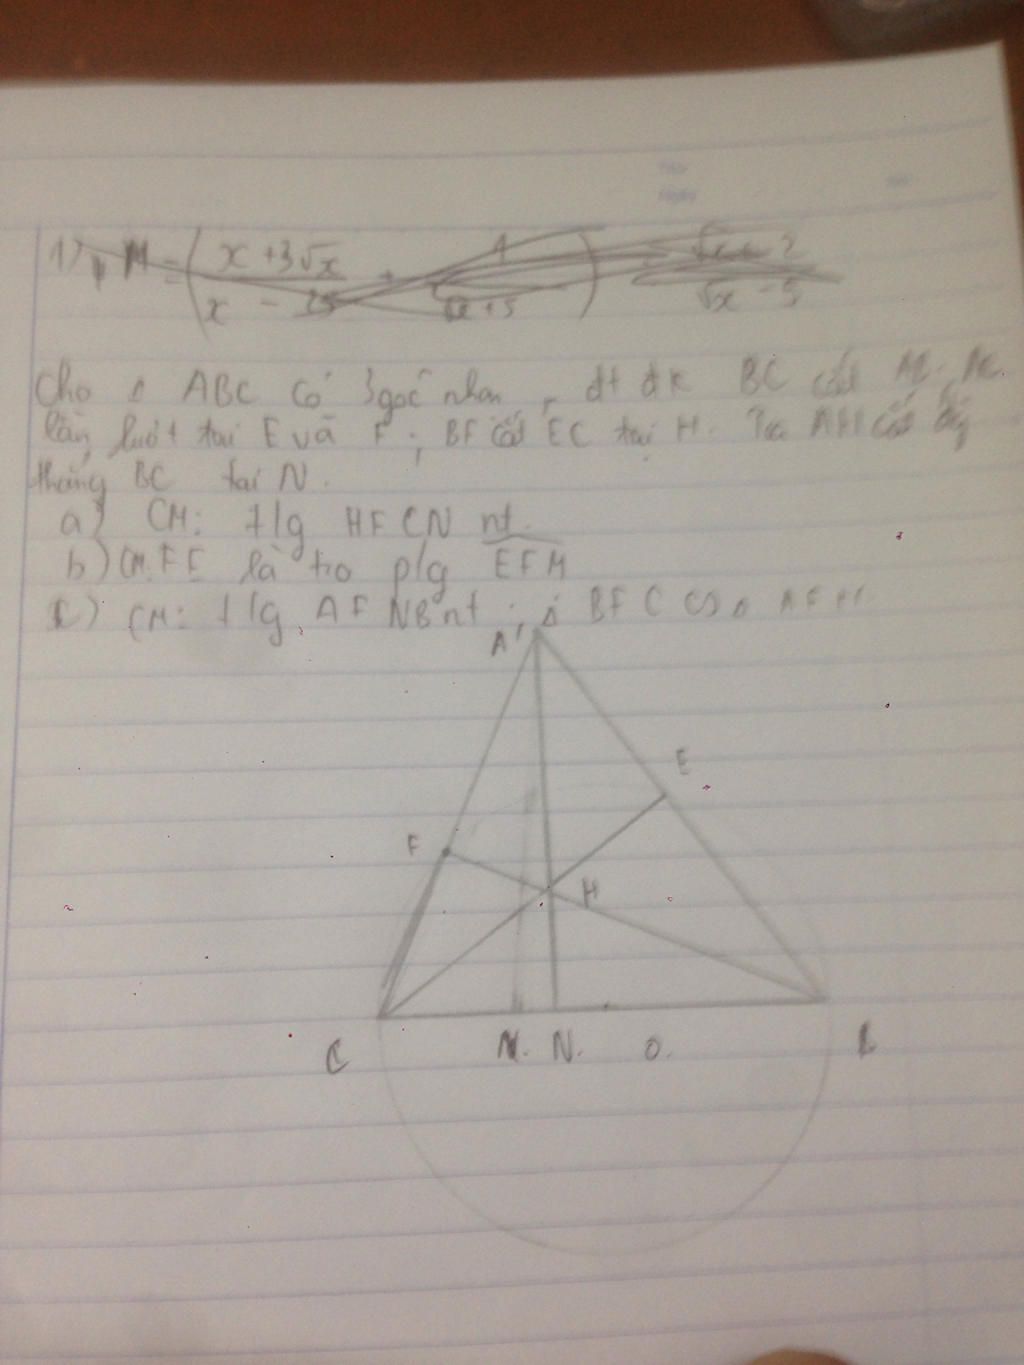 1) M = ( x + 3√x / x - 25 + 1 / √x + 5 ) : √x - 2 / √x - 5
Cho Δ ABC có 3 góc nhọn, đt đk BC cắt AB, AC
lần lượt tại E và F; BF cắt EC tại H. Tia AH cắt
thẳng BC tại N.
a) CM: t/g HFCN nt.
b) CM. là tia p/g
c) CM: t/g AFNB nt; Δ BFC ∽ Δ
A
E
F
H
C N. N. O. B